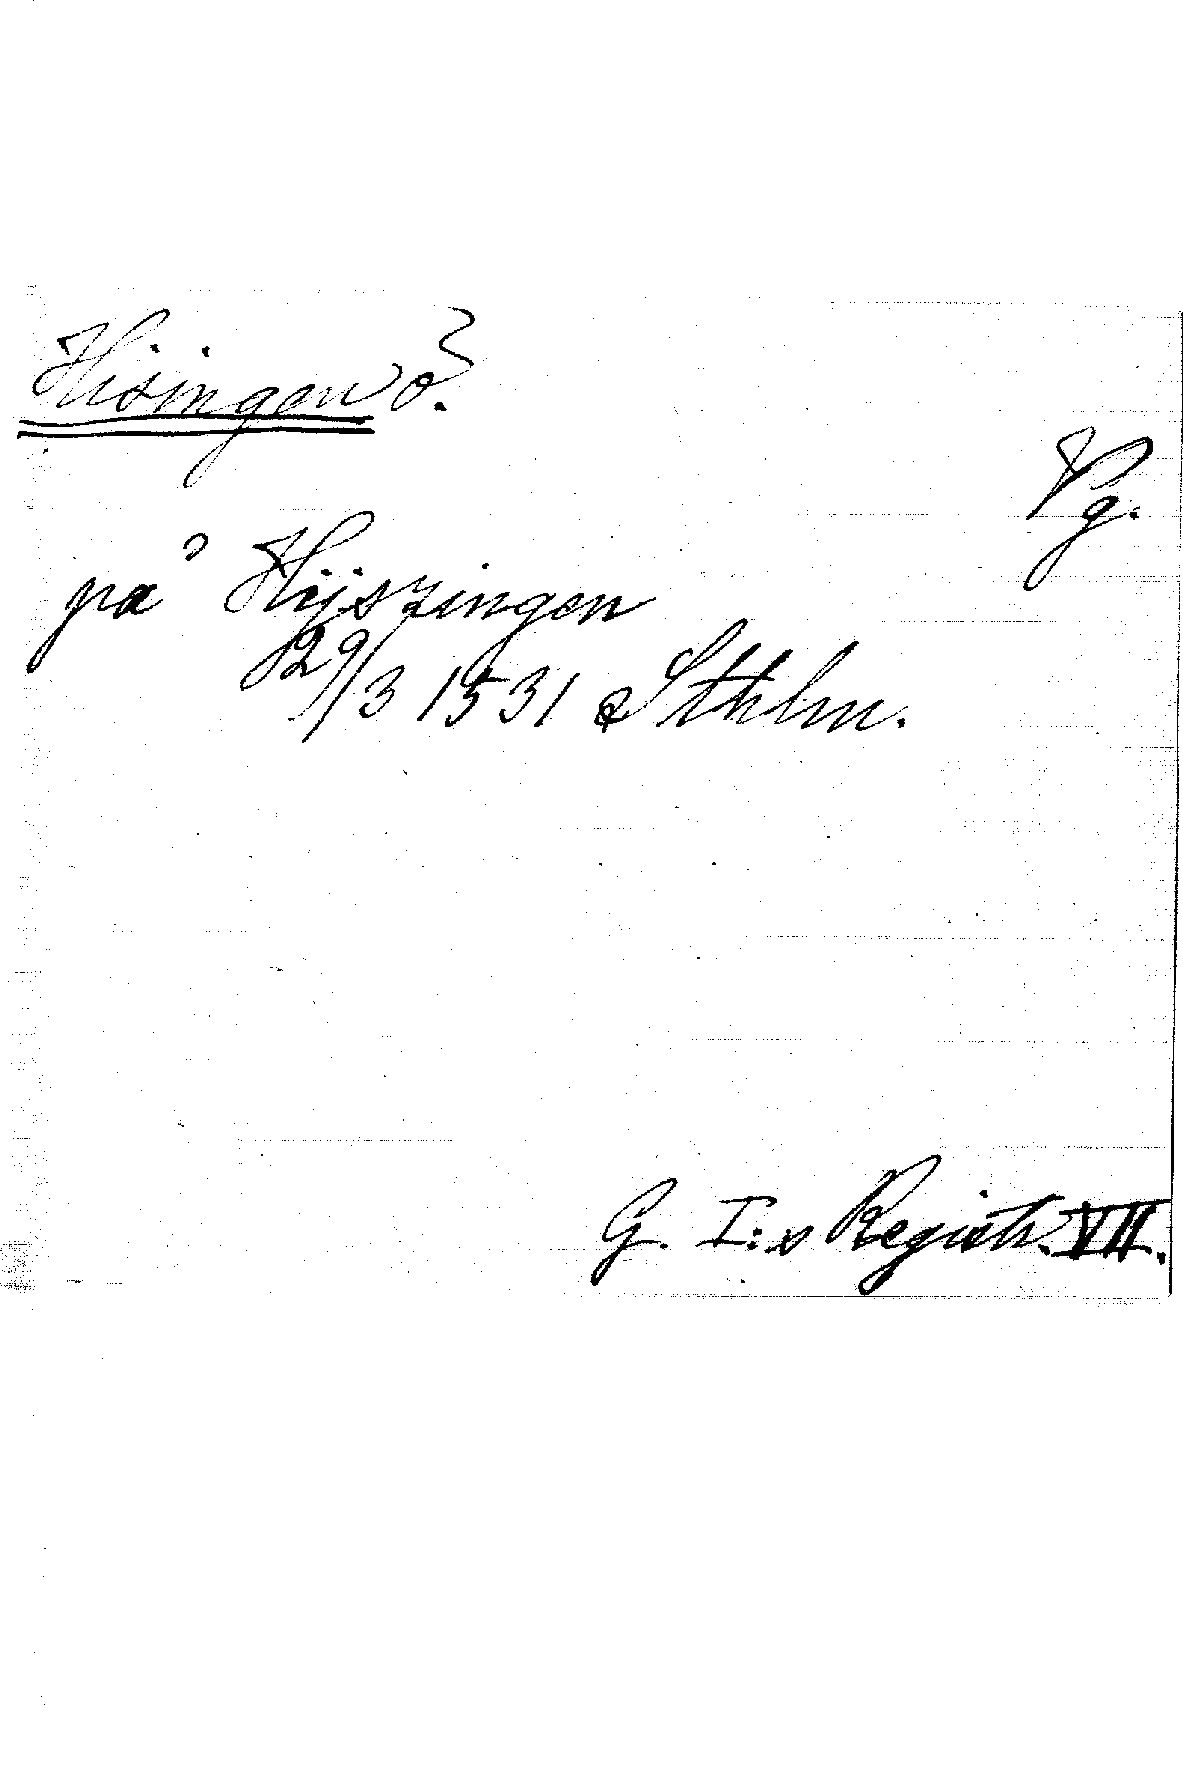 Hisingen ö.
Vg.
på Hijszingen
29/3 1531 Sthlm.
G. I:s Registr. VII.